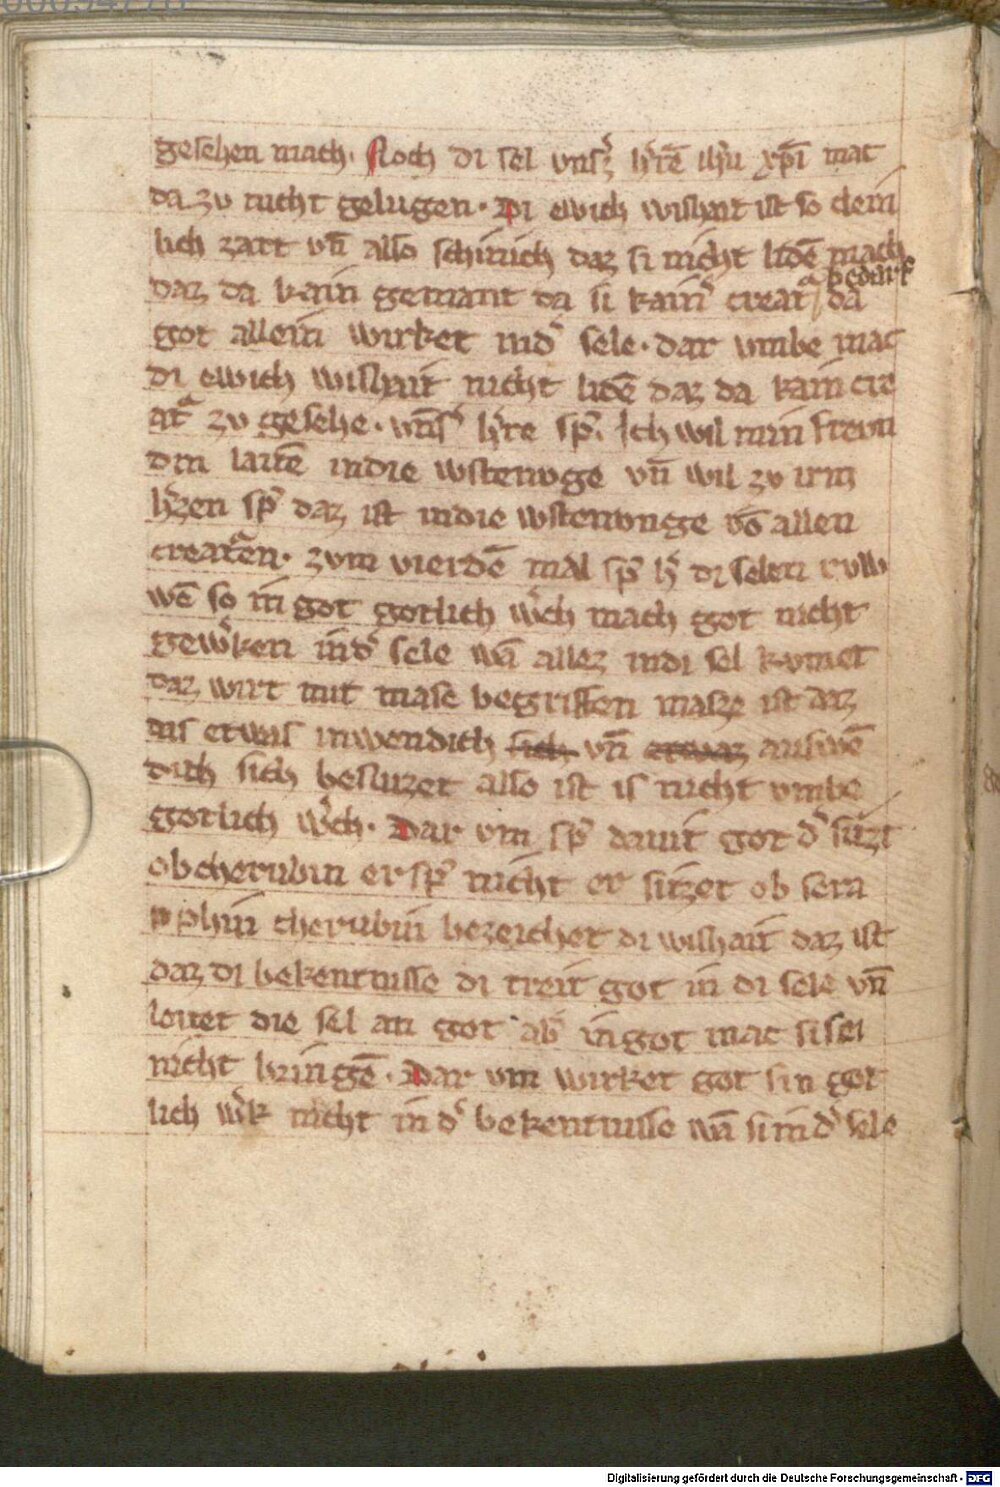 gesehen mach. Noch di sel vnsẕ hr̄e ih̄u xp̄i mac
da zv nicht gelugen. Di ewich wishait ist so clein
lich zart vn̄ also schinich daz si nicht lidē mach
bedurf
daz da kain gemant da si kain᾽ creat᷑ da
got allein wirket in d᾽ sele. dar vmbe mac
di ewich wishait nicht lidē daz da kain cre
at᷑ zv gesehe. vn̄s᾽ h᾽re sp̄. Ich wil min frevn
din laitē in die wstenvge vn̄ wil zv irm
h᾽zen sp̄ daz ist in die wstenvnge vō allen
creat᷑en. zvm vierdē mal sp̄ h᾽ di selen
wē so in got gotlich w᾽ch mach got nicht
gew᾽ken in d᾽ sele wā allez in di sel kvmet
daz wirt mit mase begriffen masze ist daz
etwas inwendich sich vn̄ etwaz auswē
dich sich besluzet also ist is nicht vmbe
gotlich w᾽ch. Dar vm sp̄ davit got d᾽ sitzt
ob cherubin er sp̄ nicht er sitzet ob sera
phin cherubin bezeichet di wishait daz ist
daz di bekentnisse di treit got in di sele vn̄
leitet die sel an got ab᾽ in got mac si sei
nicht bringē. Dar vm wirket got sin got
lich w᾽k nicht in d᾽ bekentnisse wā si in d᾽ sele
Digitalisierung gefördert durch die Deutsche Forschungsgemeinschaft - DFG